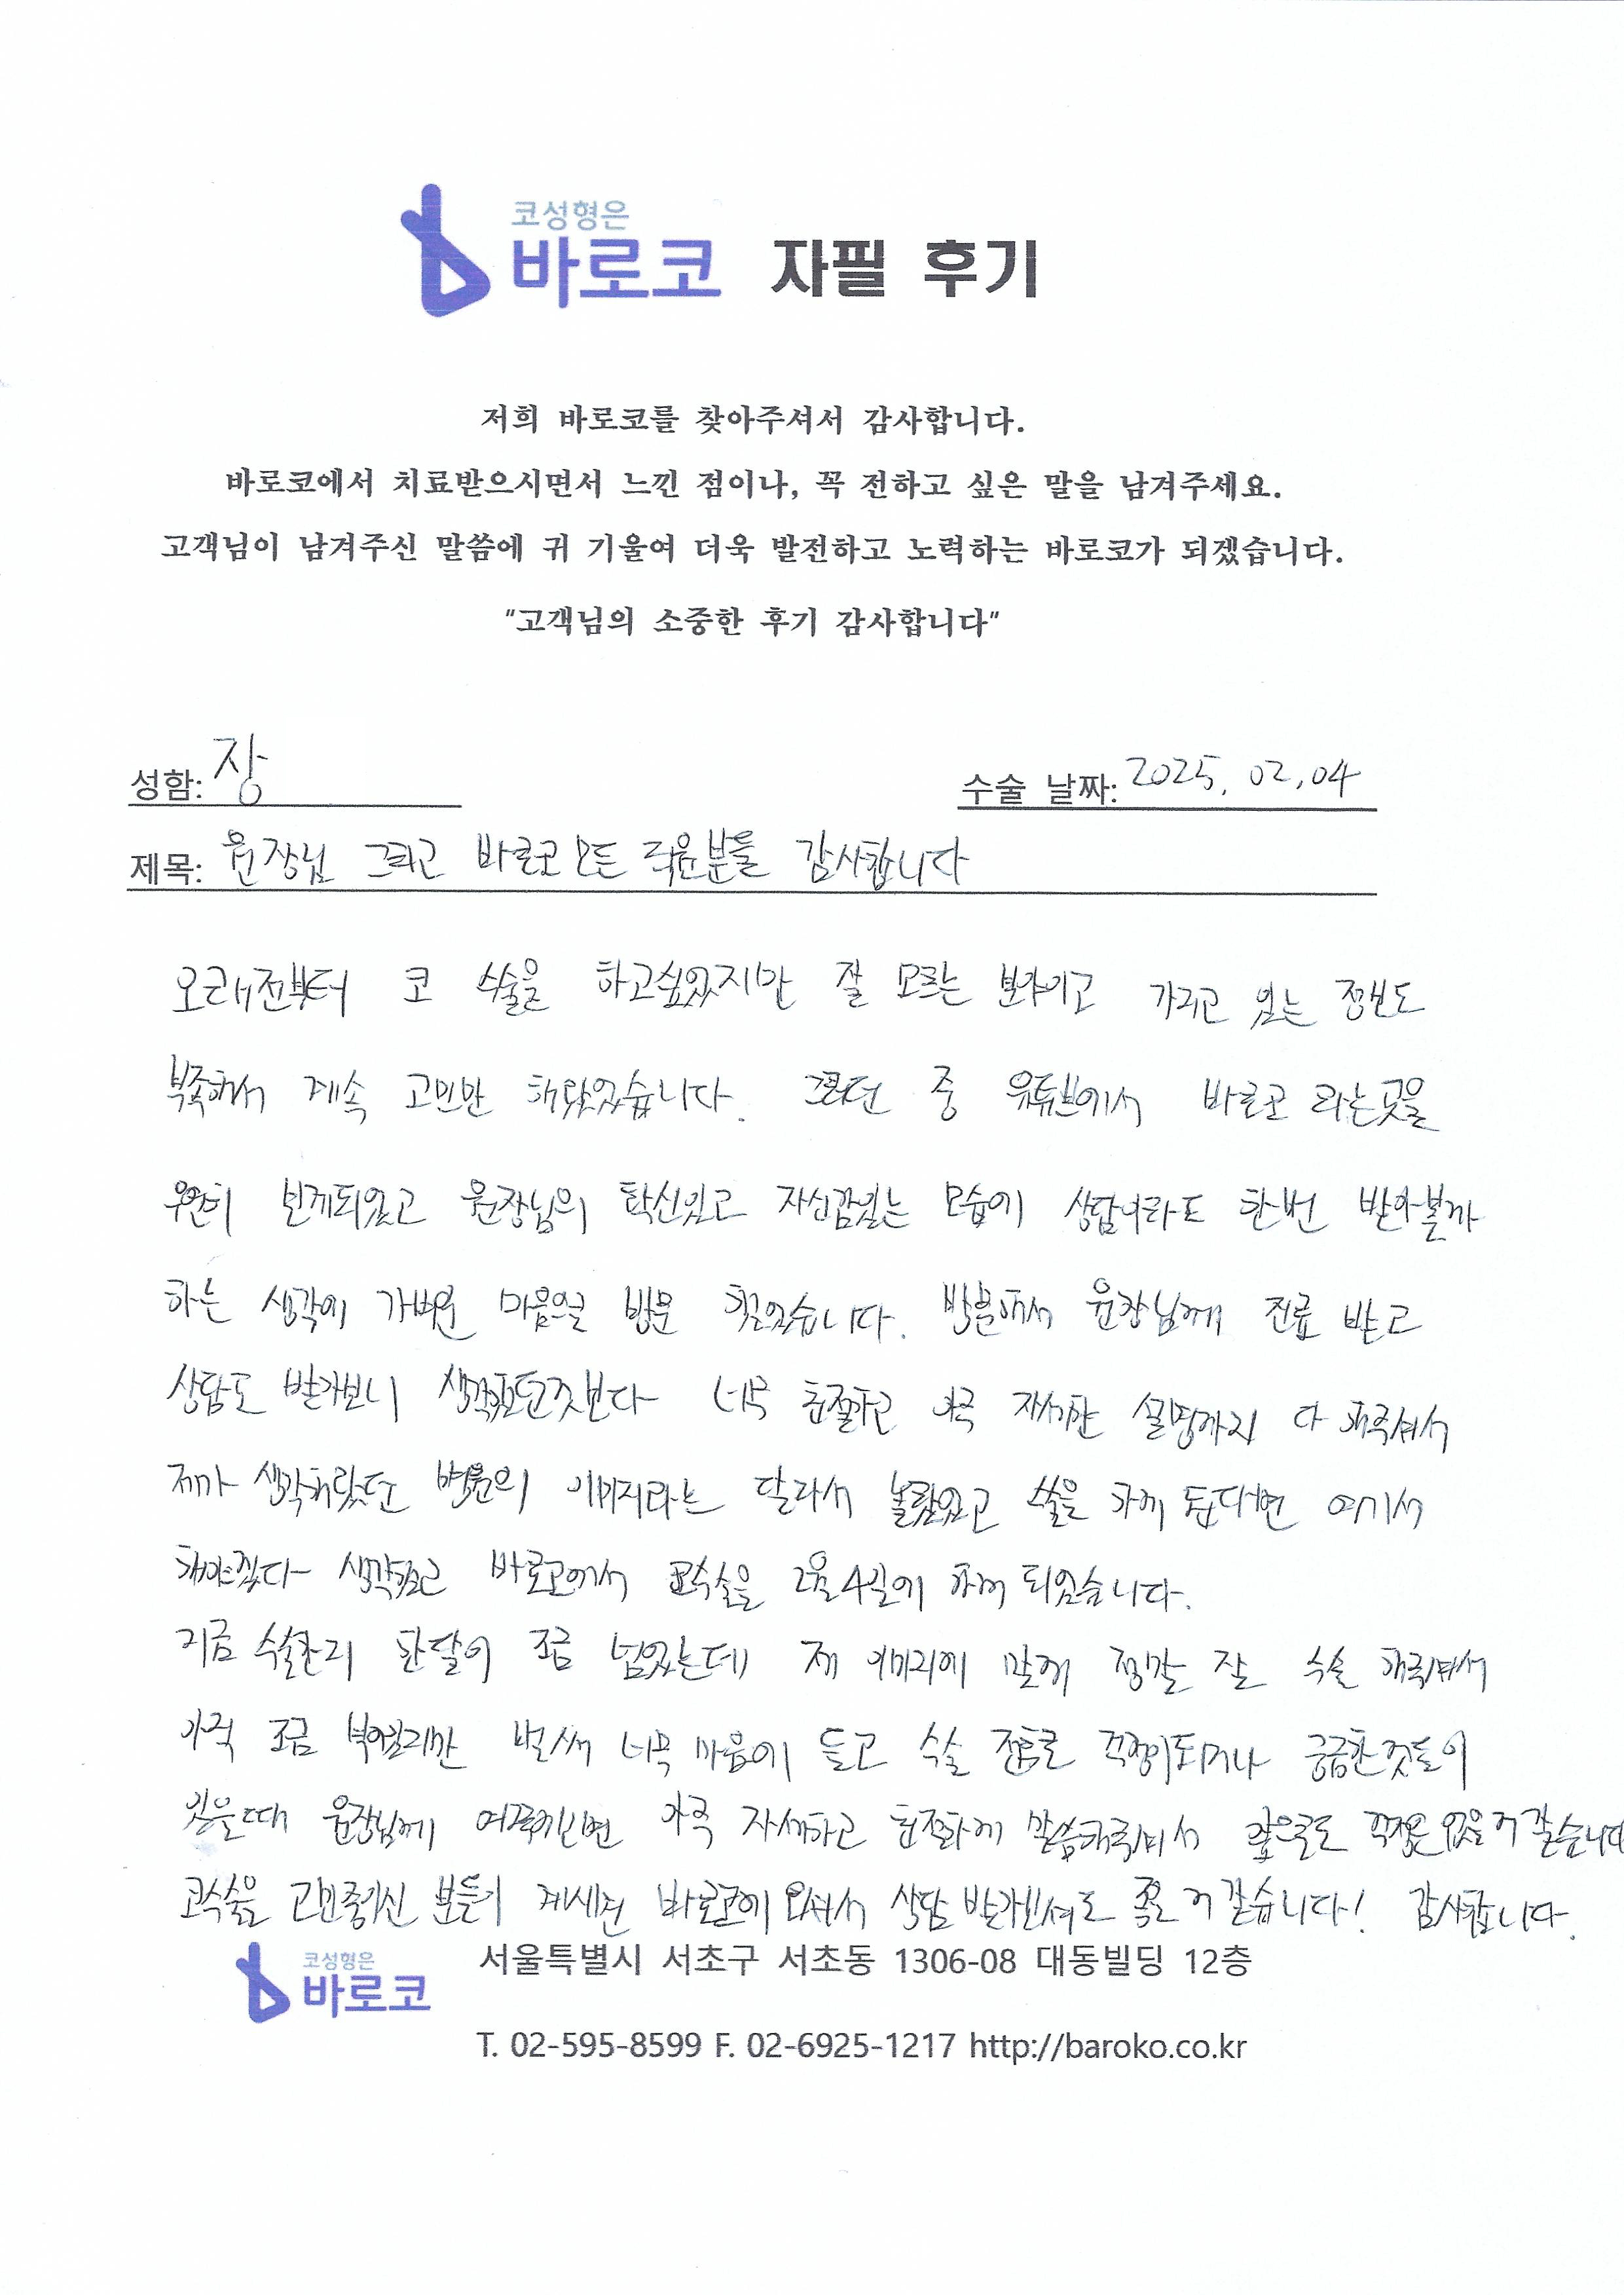 코성형은
바로코 자필 후기
저희 바로코를 찾아주셔서 감사합니다.
바로코에서 치료받으시면서 느낀 점이나, 꼭 전하고 싶은 말을 남겨주세요.
고객님이 남겨주신 말씀에 귀 기울여 더욱 발전하고 노력하는 바로코가 되겠습니다.
"고객님의 소중한 후기 감사합니다"
성함: 장 수술 날짜: 2025. 02. 04
제목: 원장님 그리고 바로코 모든 직원분들 감사합니다
오래전부터 코 수술을 하고싶었지만 잘 모르는 분야이고 가지고 있는 정보도
부족해서 계속 고민만 해왔었습니다. 그러던 중 유튜브에서 바로코 라는곳을
우연히 보게되었고 원장님의 확신있고 자신감있는 모습에 상담이라도 한번 받아볼까
하는 생각에 가벼운 마음으로 방문 했었습니다. 방문해서 원장님께 진료 받고
상담도 받아보니 생각했던것보다 너무 친절하고 아주 자세한 설명까지 다 해주셔서
제가 생각해왔던 병원의 이미지와는 달라서 놀랐었고 수술을 하게 된다면 여기서
해야겠다 생각했고 바로코에서 코수술을 2월4일에 하게 되었습니다.
지금 수술한지 한달이 조금 넘었는데 제 이미지에 맞게 정말 잘 수술 해주셔서
아직 조금 부어있지만 벌써 너무 마음에 들고 수술 전후로 걱정이되거나 궁금한것들이
있을때 원장님께 여쭤보면 아주 자세하고 친절하게 말씀해주셔서 앞으로도 걱정은 없을거 같습니다
코수술을 고민중이신 분들이 계시면 바로코에 오셔서 상담 받아보셔도 좋을거 같습니다! 감사합니다.
코성형은
바로코 서울특별시 서초구 서초동 1306-08 대동빌딩 12층
T. 02-595-8599 F. 02-6925-1217 http://baroko.co.kr